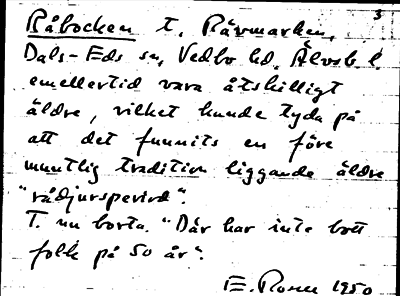 3
Råbocken t. Rävmarken,
Dals-Eds sn, Vedbo hd, Älvsb. l.
emellertid vara åtskilligt
äldre, vilket kunde tyda på
att det funnits en före
muntlig tradition liggande äldre
"rådjursperiod".
T. nu borta. "Där har inte bott
folk på 50 år".
E. Rosen 1950